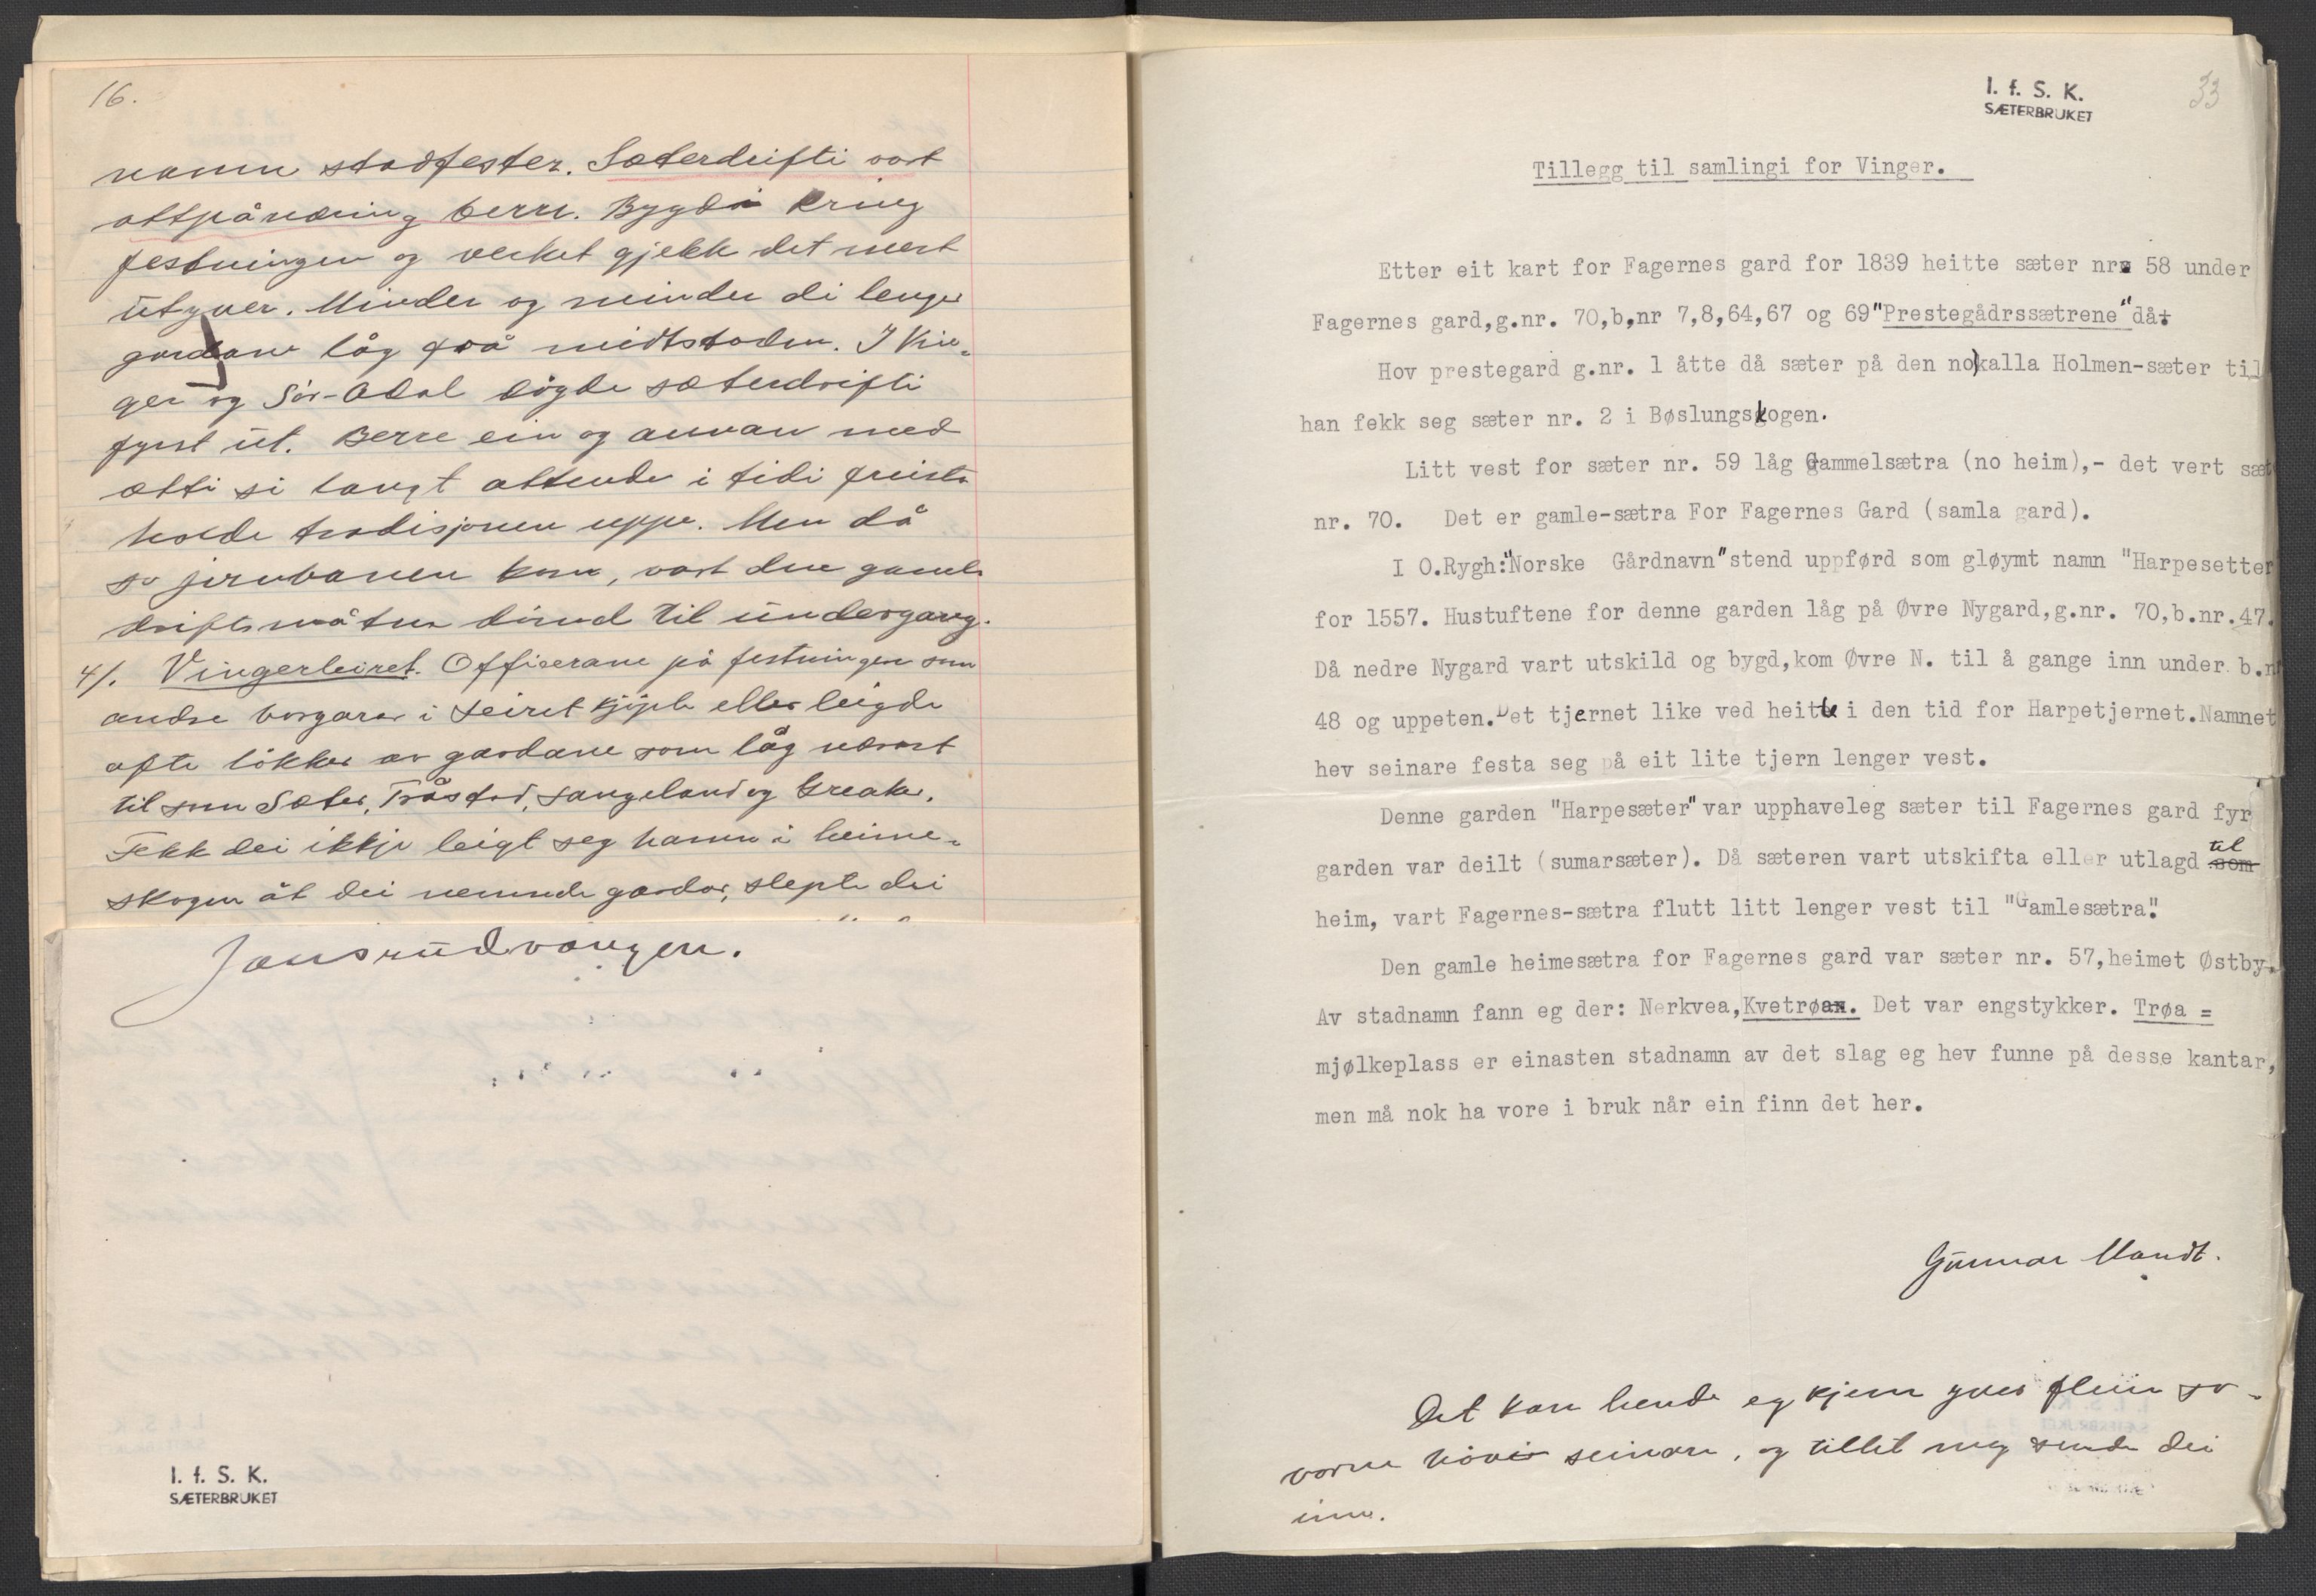 16.
namn stadfester. Sæterdrifti vart
attpånæring berre. Bygdi kring
festningen og verket gjekk det mest
utyver. Minder og minder di lenger
gardane låg frå midtstaden. I Vin-
ger og Sör-Odal døgde sæterdrifti
fyrst ut. Berre ein og annan med
ætti si langt attende i tidi freista
halde tradisjonen uppe. Men då
so jernbanen kom, vart den gamle
driftsmåten dömd til undergang.
4/. Vingerleiret. Offiserane på festningen som
andre borgarar i Leiret kjöpte eller leigde
ofte lökker av gardane som låg nærast
til som Sæter, Tråstad, Langeland og Greaker.
Fekk dei ikkje leigt seg hamn i heime-
skogen åt dei nemnde gardar, slepte dei
Jansrudvangen.
I. f. S. K.
SÆTERBRUKET
I. f. S. K.
SÆTERBRUKET
33
Tillegg til samlingi for Vinger.
Etter eit kart for Fagernes gard for 1839 heitte sæter nr. 58 under
Fagernes gard,g.nr. 70,b,nr 7,8,64,67 og 69 "Prestegådrssætrene" då.
Hov prestegard g.nr. 1 åtte då sæter på den no kalla Holmen-sæter til
han fekk seg sæter nr. 2 i Bøslungskogen.
Litt vest for sæter nr. 59 låg Gammelsætra (no heim),- det vert sæt
nr. 70. Det er gamle-sætra For Fagernes Gard (samla gard).
I O.Rygh:"Norske Gårdnavn" stend uppførd som gløymt namn "Harpesetter
for 1557. Hustuftene for denne garden låg på Øvre Nygard,g.nr. 70,b.nr.47.
Då nedre Nygard vart utskild og bygd,kom Øvre N. til å gange inn under b.n
48 og uppeten. Det tjernet like ved heitte i den tid for Harpetjernet.Namnet
hev seinare festa seg på eit lite tjern lenger vest.
Denne garden "Harpesæter" var upphaveleg sæter til Fagernes gard fyr
garden var deilt (sumarsæter). Då sæteren vart utskifta eller utlagd som til
heim, vart Fagernes-sætra flutt litt lenger vest til "Gamlesætra".
Den gamle heimesætra for Fagernes gard var sæter nr. 57,heimet Østby.
Av stadnamn fann eg der: Nerkvea,Kvetrøan. Det var engstykker. Trøa =
mjølkeplass er einasten stadnamn av det slag eg hev funne på desse kantar,
men må nok ha vore i bruk når ein finn det her.
Gunnar Mandt.
Det kan hende eg kjem yver fleir so-
vorne høve seinare, og tillet meg sende dei
inn.